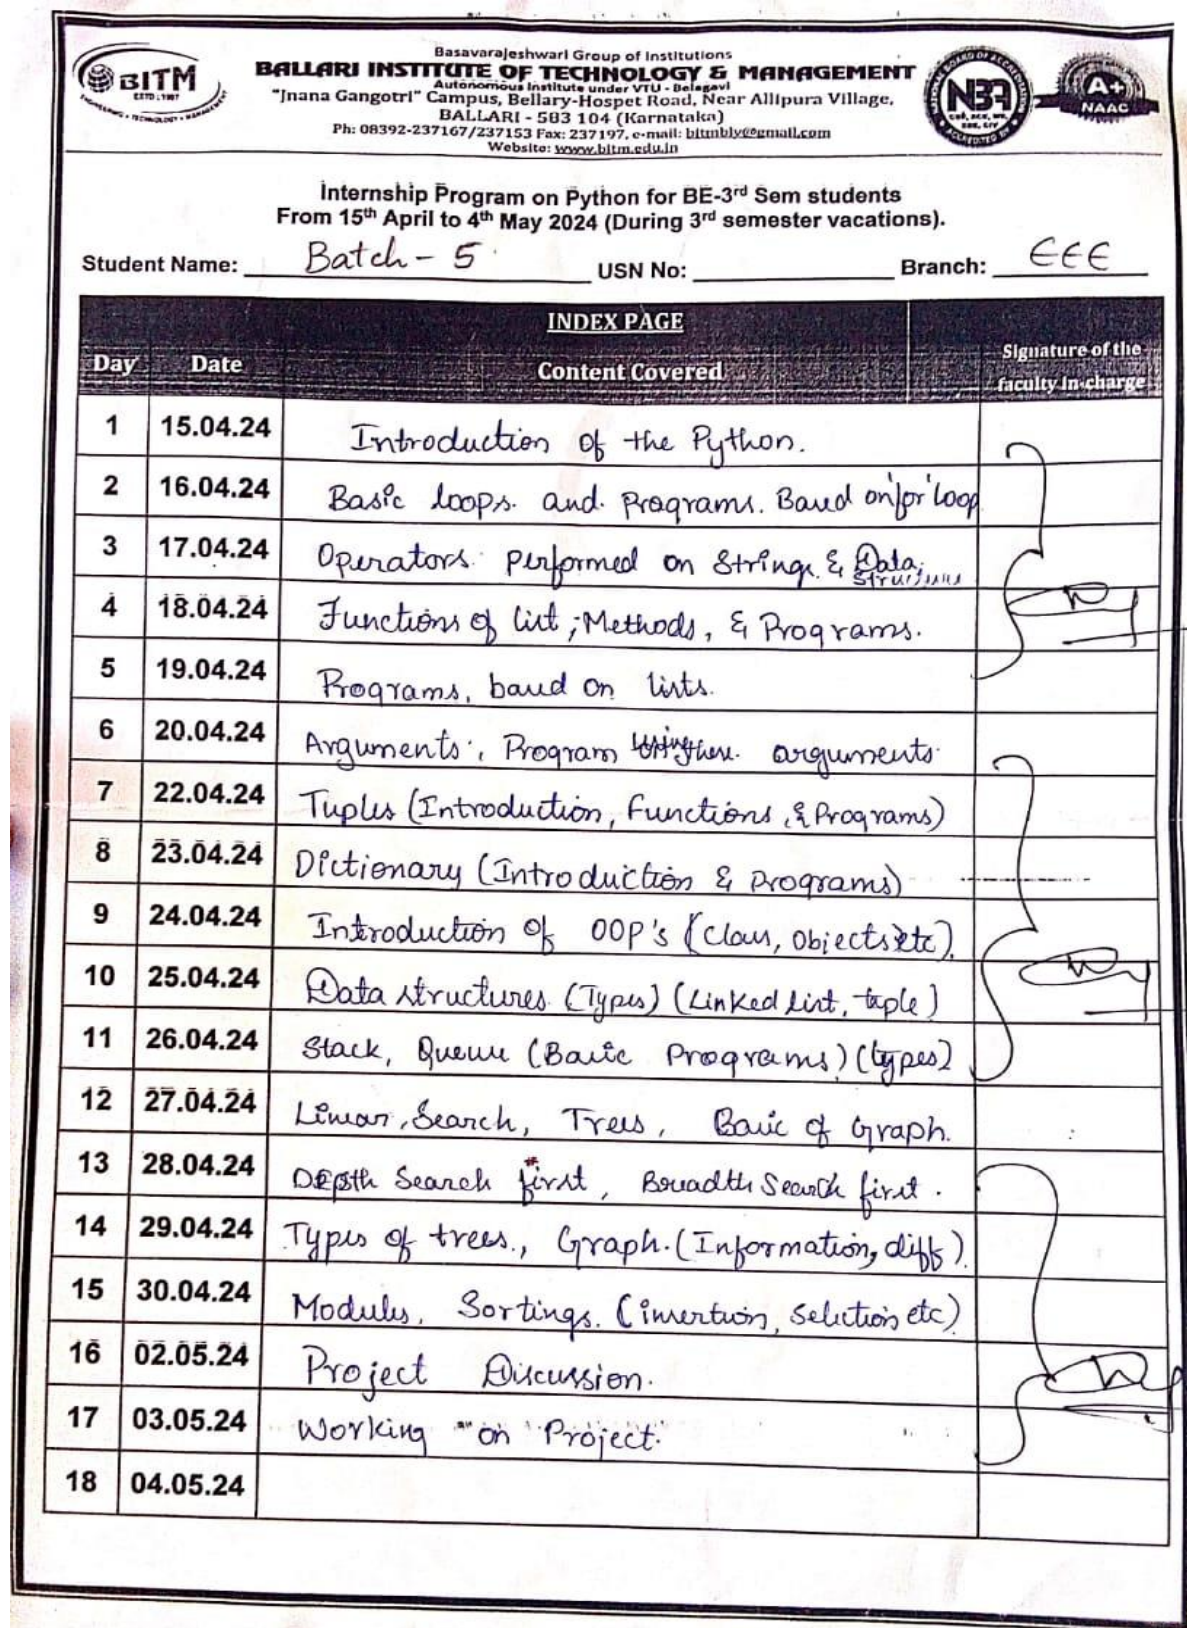 BITM
ESTD : 1997
Basavarajeshwari Group of Institutions
BALLARI INSTITUTE OF TECHNOLOGY & MANAGEMENT
Autonomous Institute under VTU - Belagavi
"Jnana Gangotri" Campus, Bellary-Hospet Road, Near Allipura Village,
BALLARI - 583 104 (Karnataka)
Ph: 08392-237167/237153 Fax: 237197, e-mail: bitmbly@gmail.com
Website: www.bitm.edu.in
NBA
A+
NAAC
Internship Program on Python for BE-3rd Sem students
From 15th April to 4th May 2024 (During 3rd semester vacations).
Student Name: Batch - 5 USN No: Branch: EEE
INDEX PAGE
Day Date Content Covered Signature of the faculty in-charge
1 15.04.24 Introduction of the Python.
2 16.04.24 Basic loops and programs. Based on 'for' loop
3 17.04.24 Operators performed on Strings & Data Structures
4 18.04.24 Functions of list, Methods, & Programs.
5 19.04.24 Programs, based on lists.
6 20.04.24 Arguments, Program using these arguments
7 22.04.24 Tuples (Introduction, Functions, & Programs)
8 23.04.24 Dictionary (Introduction & Programs)
9 24.04.24 Introduction of OOP's (Class, Objects etc).
10 25.04.24 Data structures (Types) (Linked list, tuple)
11 26.04.24 Stack, Queue (Basic Programs) (types)
12 27.04.24 Linear Search, Trees, Basic of Graph.
13 28.04.24 Depth Search first, Breadth Search first.
14 29.04.24 Types of trees, Graph. (Information, diff).
15 30.04.24 Modules, Sortings. (insertion, selection etc)
16 02.05.24 Project Discussion.
17 03.05.24 Working on Project.
18 04.05.24